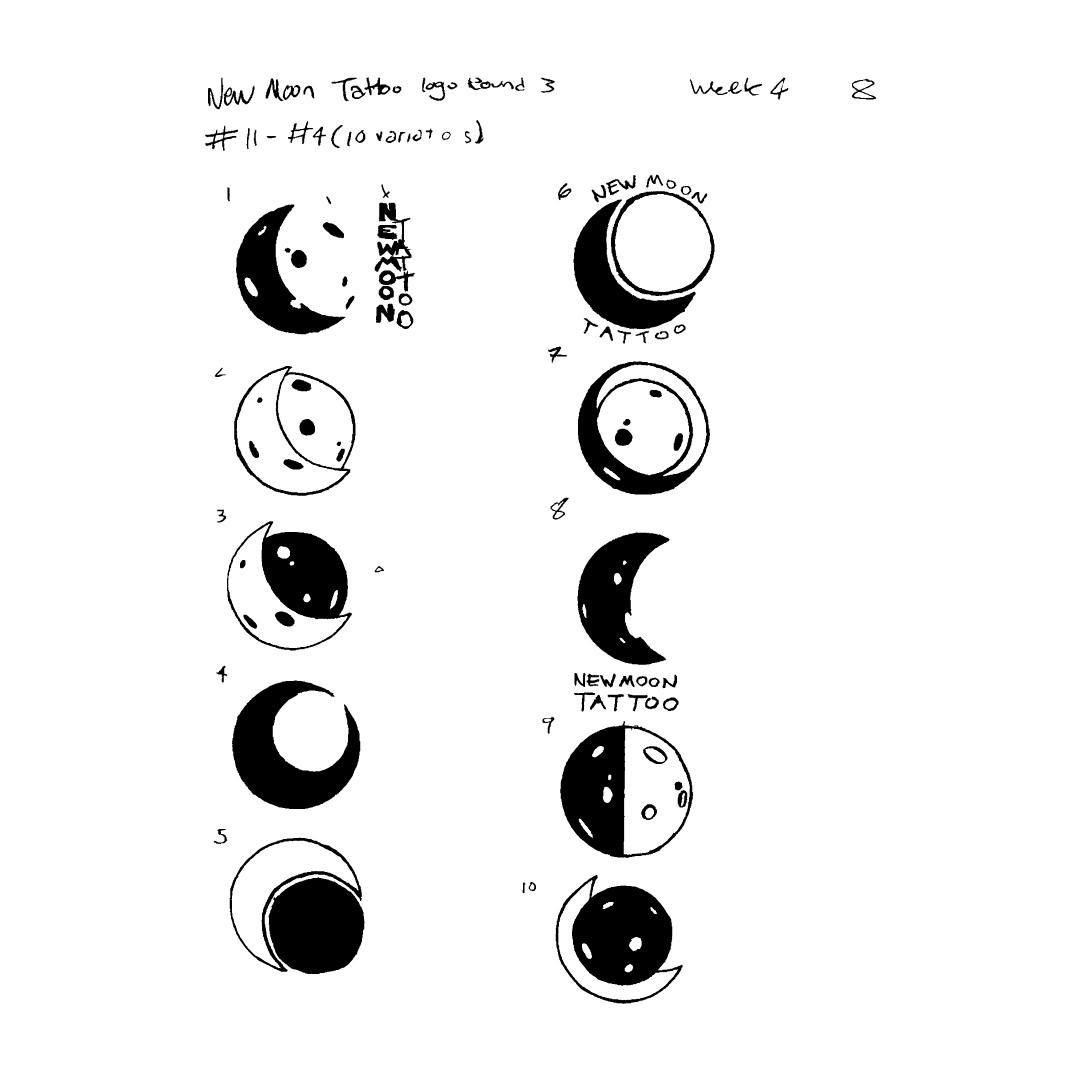 New Moon Tattoo logo Round 3
Week 4
8
#11 - #4 (10 variat o s)
1
NEW MOON
TATTOO
2
3
4
5
6
NEW MOON
TATTOO
7
8
NEW MOON
TATTOO
9
10